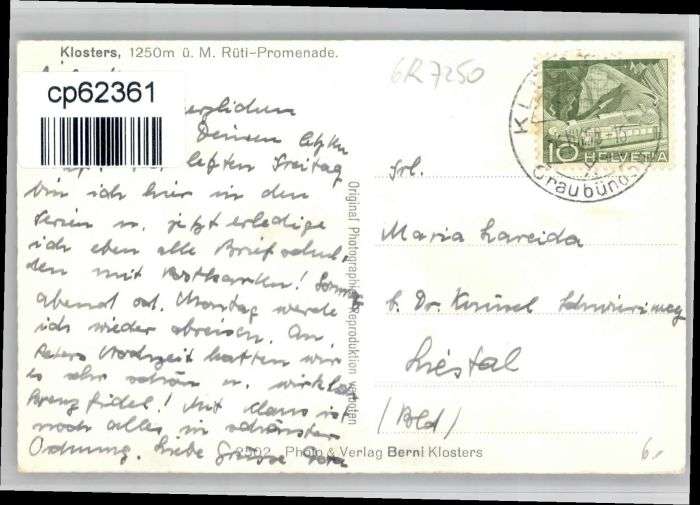 Klosters, 1250m ü. M. Rüti-Promenade.
6R7250
cp62361
HELVETIA
10
Graubünd
herzlichen
Deinen letzten
letzten Freitag
bin ich hier in den
Ferien u. jetzt erledige
ich eben alle Briefschul-
den mit Postkarten! Sonntag
abend od. Montag werde
ich wieder abreisen. An
Peters Hochzeit hatten wir
es sehr schön u. wirklich
kreuzfidel! Mit Claus ist
noch alles in schönster
Ordnung. Liebe Grüsse
Original Photographie Reproduktion verboten
Frl.
Maria Lareida
b. Dr.
Liestal
(Bld)
2502 Photo & Verlag Berni Klosters
6.-